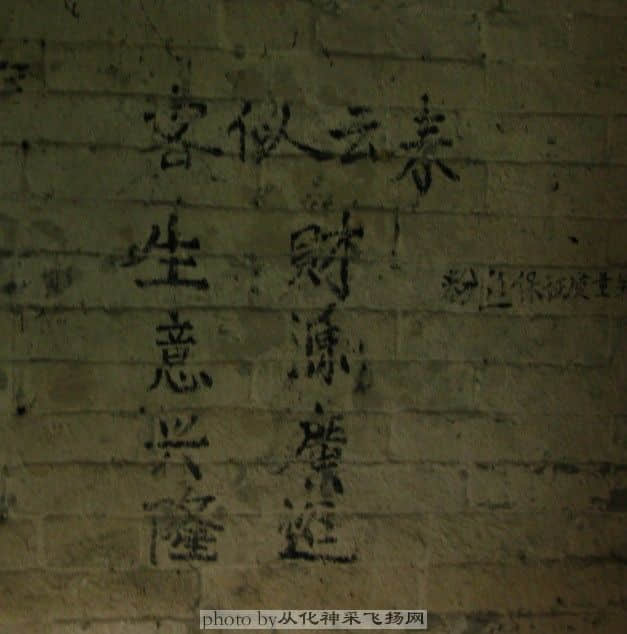 客似云来
生意兴隆
財源廣進
保证质量
photo by从化神采飞扬网